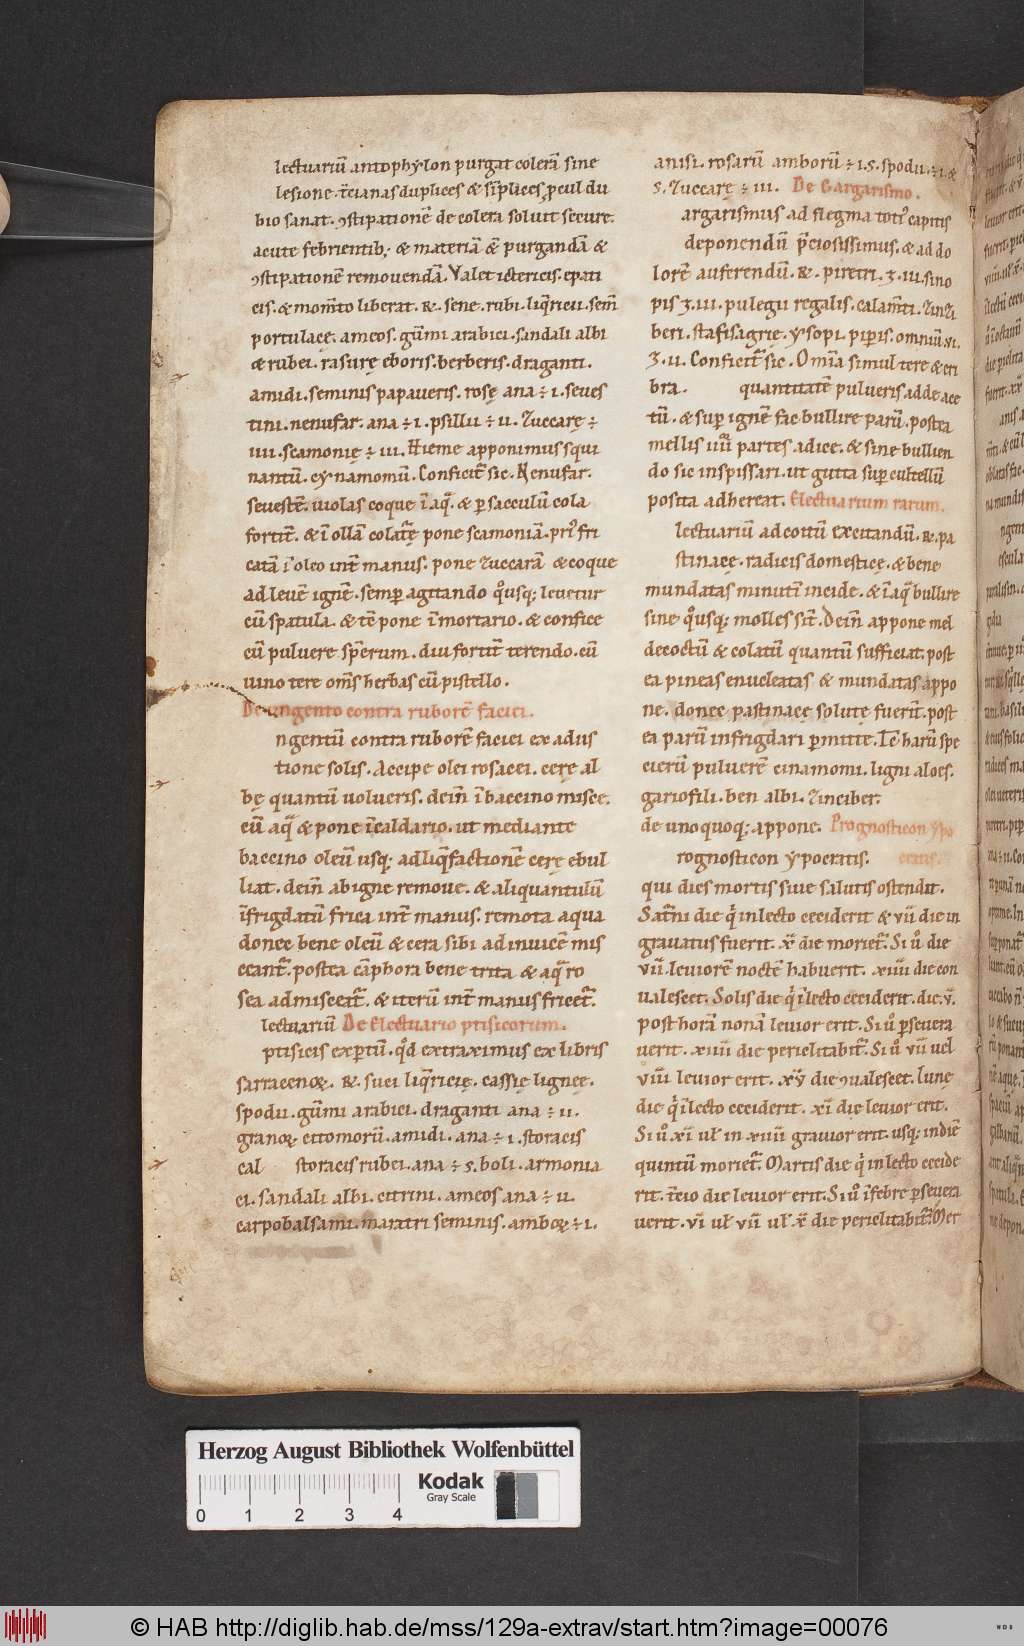 lectuariū antophylon purgat colerā sine
lesione. t̄cianas duplices & sīplices, ꝓcul du
bio sanat. ꝯstipationē de colera soluit secure.
acute febrientib; & materiā ē purgandā &
ꝯstipationē remouendā. Valet ictericis. epati
cis. & mom̄to liberat. ℞. sene. rubi. liq̄ricii. sem̄
portulace. ameos. gūmi arabici. sandali albi
& rubei. rasurę eboris. berberis. draganti.
amidi. seminis papaueris. rosę ana ÷ i. seues
tini. nenufar. ana ÷ i. psillii ÷ ii. Zuccarę ÷
iiii. scamonię ÷ iii. Hieme apponimus squi
nantū. cynamomū. Conficit̄ sic. Nenufar.
seuestē. uiolas coque ī aq̄. & ꝑ sacculū cola
fortit̄. & ī ollā colatę pone scamoniā. pri᷒ fri
catā ī oleo int̄ manus. pone Zuccarā & coque
ad leuē ignē. semꝑ agitando q̊usq; leuetur
cū spatula. & tē pone ī mortario. & confice
cū puluere sp̄erum. diu fortit̄ terendo. cū
uino tere om̄s herbas cū pistello.
De ungento contra ruborē faciei.
ngentū contra ruborē faciei ex adus
tione solis. Accipe olei rosacei. cerę al
bę quantū uolueris. dein̄ ī baccino misce.
cū aq̄ & pone ī caldario. ut mediante
baccino oleū usq; ad liq̄factionē cerę ebul
liat. dein̄ ab igne remoue. & aliquantulū
īfrigdatū frica int̄ manus. remota aqua
donec bene oleū & cera sibi adinuicē mis
ceant̄. postea cāphora bene trita & aq̄ ro
sea admisceat̄. & iterū int̄ manus fricet̄.
lectuariū De Electuario ptisicorum.
ptisicis exꝑtū. q̊d extraximus ex libris
sarracenoꝝ. ℞. suci liq̄ricię. cassię lignee.
spodii. gūmi arabici. draganti ana ÷ ii.
granoꝝ citomorū. amidi. ana ÷ i. storacis
cal storacis rubei. ana ÷ s. boli. armonia
ci. sandali albi. citrini. ameos ana ÷ ii.
carpobalsami. maratri seminis. amboꝝ ÷ i.
anisi. rosarū amborū ÷ i. s. spodii. ÷ i. &
s. Zuccarę ÷ iii. De Gargarismo.
argarismus ad flegma toti᷒ capitis
deponendū p̄ciosissimus. & ad do
lorē auferendū. ℞. piretri. ʒ. iii. sino
pis ʒ. iii. pulegii regalis. calam̄ti. Zinzi
beri. stafisagrię. ysopi. pip̱is. omniū. vi.
ʒ. ii. Conficit̄ sic. Om̄ia simul tere & cri
bra. quantitatē pulueris adde ace
tū. & suꝑ ignē fac bullire parū. postea
mellis iiii᷒ partes adice. & sine bullien
do sic inspissari. ut gutta suꝑ cultellū
posita adhereat. Electuarium rarum.
lectuariū ad coitū excitandū. ℞. pa
stinacę. radicis domesticę. & bene
mundatas minutī incide. & ī aq̄ bullire
sine q̊usq; molles sīt. Dein̄ appone mel
decoctū & colatū quantū sufficiat. post
ea pineas enucleatas & mundatas appo
ne. donec pastinacę solutę fuerīt. post
ea parū infrigdari ꝑmitte. Tē harū spe
cierū puluerē cinamomi. ligni aloes.
gariofili. ben albi. Zinciber.
de unoquoq; appone. Prognosticon ẏpo
rognosticon ẏpocratis. cratis.
qui dies mortis siue salutis ostendit.
Sat̄ni die q̇ in lecto ceciderit & vii᷒ die in
grauatus fuerit. x᷒ die moriet̄. Si ů die
vii᷒. leuiorē noctē habuerit. xiiii die con
ualescet. Solis die q̇ ī lecto ceciderit. die. v᷒.
post horā nonā leuior erit. Si ů ꝑseuera
uerit. xiiii die periclitabit̄. Si ů vii᷒ uel
viii᷒ leuior erit. xv᷒ die ꝯualescet. Lunę
die q̇ ī lecto ceciderit. xi᷒ die leuior erit.
Si ů. xi᷒ ul̄ in xiiii᷒ grauior erit. usq; in diē
quintū moriet̄. Martis die q̇ in lecto cecide
rit. t̄cio die leuior erit. Si ů ī febre ꝑseuera
uerit. vi᷒ ul̄ vii᷒ ul̄ x᷒ die periclitabit̄. Mer
Herzog August Bibliothek Wolfenbüttel
Kodak
Gray Scale
0 1 2 3 4
© HAB http://diglib.hab.de/mss/129a-extrav/start.htm?image=00076